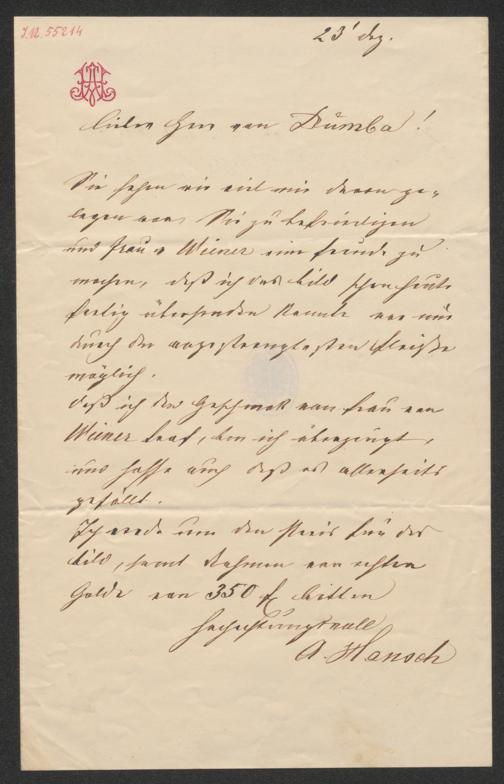 I.N. 55214
23' Dez.
AH
Lieber Herr von Dumba!
Sie sehen wie viel mir daran ge-
legen war, Sie zu befriedigen
und Frau v Wiener eine Freude zu
machen, daß ich das Bild schon heute
fertig übersenden konnte war nur
durch den angestrengtesten Fleiße
möglich.
Daß ich den Geschmack von Frau von
Wiener traf, bin ich überzeugt,
und hoffe auch daß es allerseits
gefällt.
Ich werde um den Preis für das
Bild, samt Rahmen von echten
Golde von 350 f bitten
Hochachtungsvoll
A. Hansch